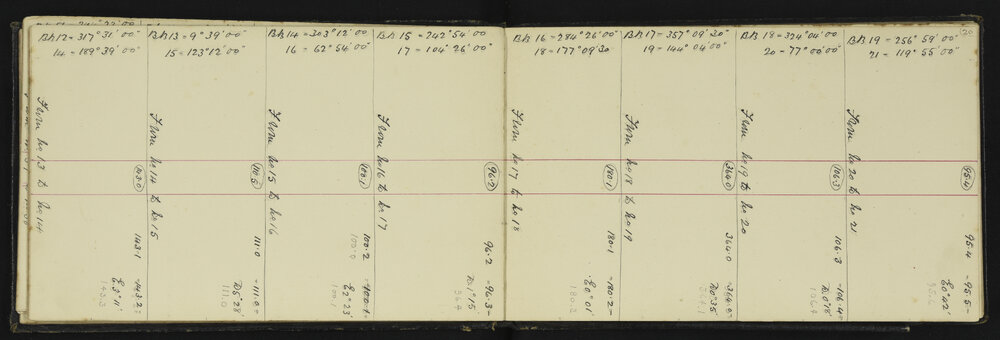 BK 12 = 317° 31' 00"
14 = 189° 39' 00"
From No 13 to No 14
143.0
143.1 - 143.2 =
E 3° 11'
143.3
BK 13 = 9° 39' 00"
15 = 123° 12' 00"
From No 14 to No 15
111.0 - 111.0 =
D 5° 28'
111.0
BK 14 = 303° 12' 00"
16 = 62° 54' 00"
From No 15 to No 16
100.1
100.2 - 100.1
100.0
E 2° 23'
BK 15 = 242° 54' 00
17 = 104° 26' 00"
From No 16 to No 17
96.2
96.2 - 96.3 -
D 1° 15'
96.4
BK 16 = 284° 26' 00
18 = 177° 09' 30
From No 17 to No 18
180.1
180.1 - 180.2 -
E 0° 01'
180.2
BK 17 = 357° 09' 30"
19 = 144° 04' 00"
From No 18 to No 19
364.0
364.0
D 0° 35'
BK 18 = 324° 04' 00
20 = 77° 00' 00"
From No 19 to No 20
106.3
106.3 - 106.4 =
D 0° 18'
106.4
BK 19 = 256° 59' 00
21 = 119° 55' 00"
20
From No 20 to No 21
95.4
95.4 - 95.5 -
E 0° 42'
95.6